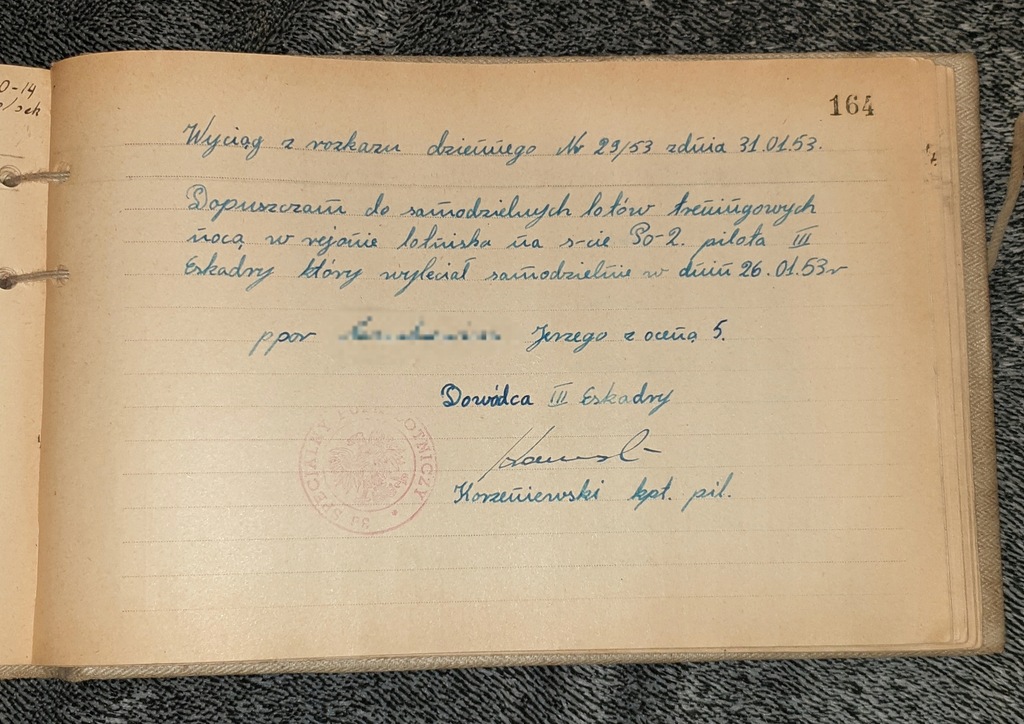 164
Wyciąg z rozkazu dziennego Nr 29/53 z dnia 31.01.53.
Dopuszczam do samodzielnych lotów treningowych
nocą w rejonie lotniska na s-cie Po-2. pilota III
Eskadry który wyleciał samodzielnie w dniu 26.01.53r
ppor Jerzego z oceną 5.
Dowódca III Eskadry
Korzeniewski kpt. pil.
SPECJALNY LOTNICZY